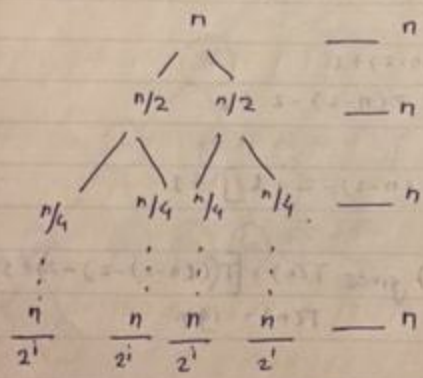 n — n
n/2 n/2 — n
n/4 n/4 n/4 n/4 — n
n/2^i n/2^i n/2^i n/2^i — n